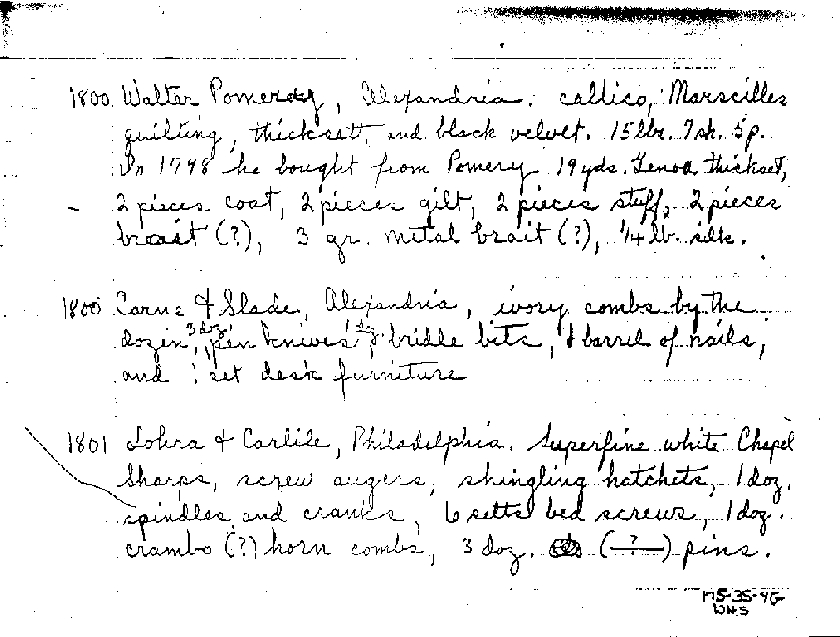 1800 Walter Pomeroy, Alexandria. callico, Marseilles
quilting, thicksett, and black velvet. 15 lbr. 7 sh. 5 p.
In 1798 he bought from Pomery 19 yds. Genoa thickset,
- 2 pieces coat, 2 pieces gilt, 2 pieces stuff, 2 pieces
breast (?), 3 gr. metal brait (?), 1/4 lb. silk.
1800 & Slade, Alexandria, ivory combs by the
dozen, 3 doz. pen knives, 1 dz. bridle bits, 1 barrel of nails,
and 1 set desk furniture
1801 Lohra & Carlile, Philadelphia. Superfine white Chapel
Sharps, screw augers, shingling hatchets, 1 doz.
spindles and cranks, 6 setts bed screws, 1 doz.
crambo (?) horn combs, 3 doz. (?) pins.
MS-35-4G
WHS